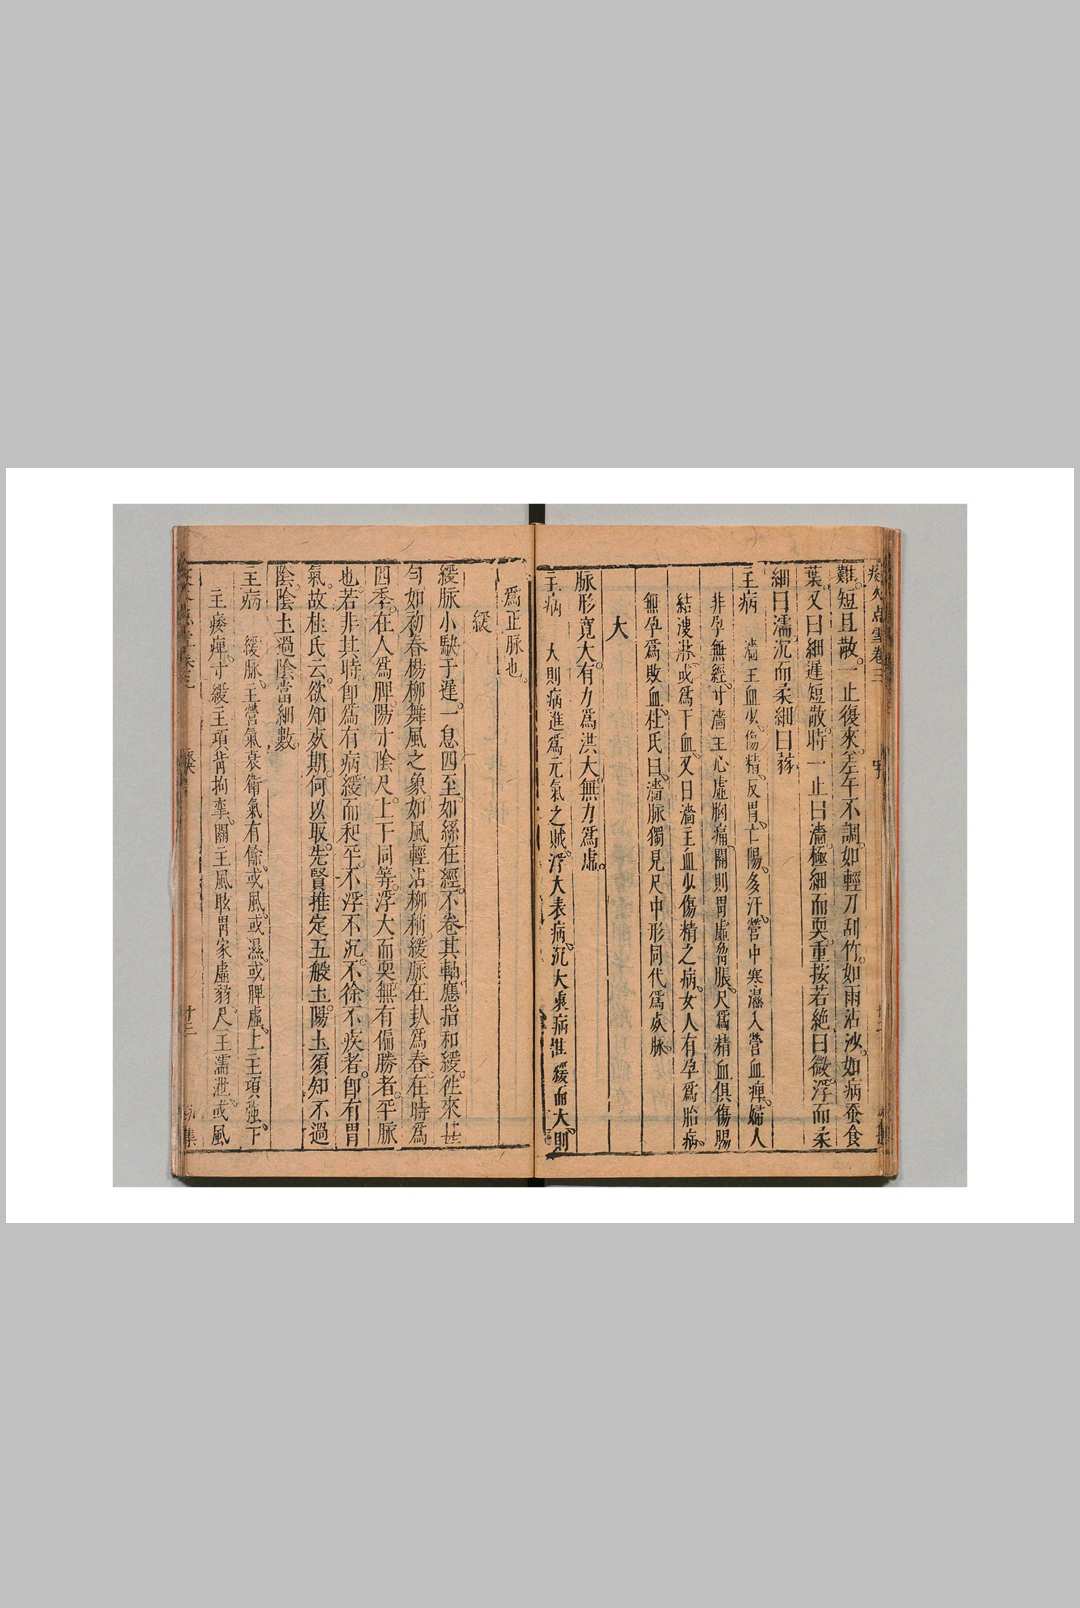 難短且散一止復來差午不調如輕刀刮竹如雨沾沙如病蚕食
葉又曰細遲短散時一止曰濇極細而耎重按若絶曰微浮而柔
細曰濡沉而柔細曰
主病　濇主血少傷精反胃亡陽多汗營中寒濕入營血痺婦人
非孕無經寸濇主心虛胸痛關則胃虛脅脹尺爲精血俱傷腸
結溲淋或爲下血又曰濇主血少傷精之病女人有孕爲胎病
無孕爲敗血杜氏曰濇脉獨見尺中形同代爲死脉
大
脉形寬大有力爲洪大無力爲虛
主病　大則病進爲元氣之賊浮大表病沉大裏病惟緩而大則
爲正脉也
緩
緩脉小駃于遲一息四至如絲在經不卷其軸應指和緩徃來甚
勻如初春楊柳舞風之象如風輕沾柳稍緩脉在卦爲春在時爲
四季在人爲脾陽寸陰尺上下同等浮大而耎無有偏勝者平脉
也若非其時卽爲有病緩而和平不浮不沉不徐不疾者卽有胃
氣故杜氏云欲知死期何以取先賢推定五般土陽土須知不過
陰陰土過陰當細數
主病　緩脉主營氣衰衛氣有餘或風或濕或脾虛上主項強下
主痿痺寸緩主項背拘攣關主風眩胃家虛弱尺主濡泄或風